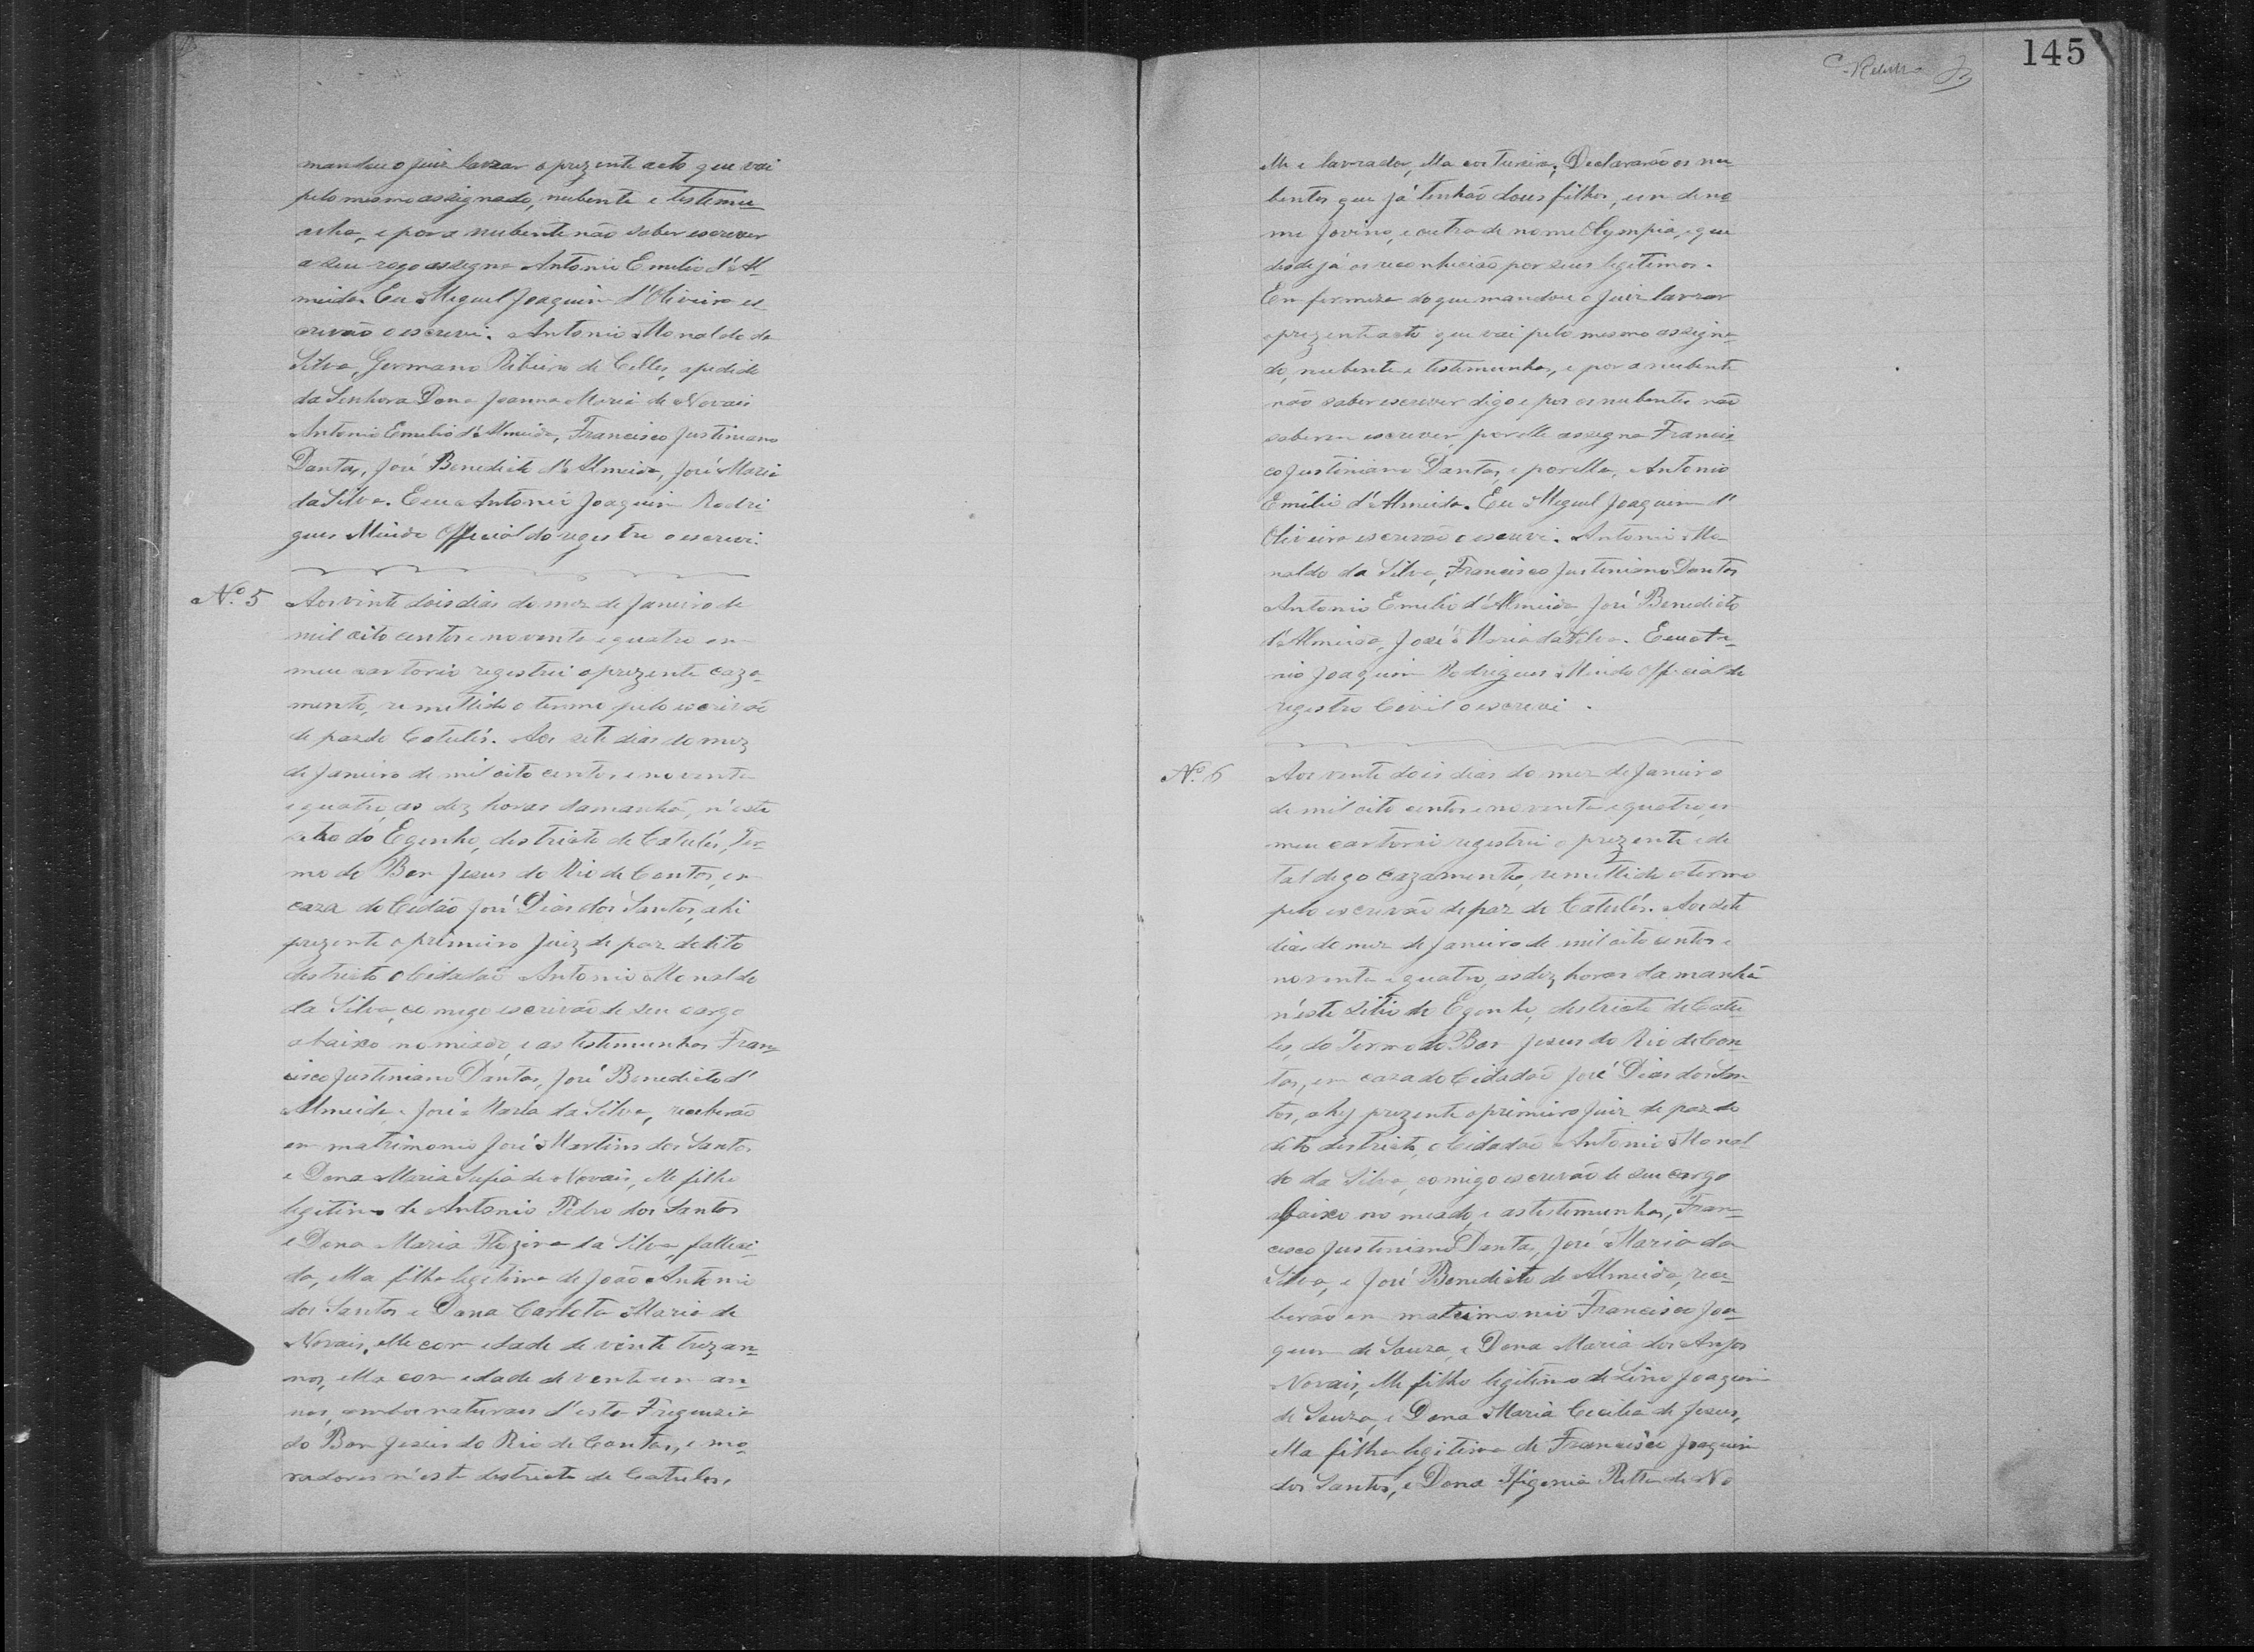 mandou o juiz lavrar o prezente acto que vai
pelo mesmo assignado, nubente e testemu-
nhas, e por a nubente não saber escrever
a seu rogo assigna Antonio Emilio d'Al-
meida. Eu Miguel Joaquim d'Oliveira es-
crivão o escrevi. Antonio Monaldo da
Silva, Germano Ribeiro de Telles, a pedido
da Senhora Dona Joanna Maria de Novais
Antonio Emilio d'Almeida, Francisco Justiniano
Dantas, José Benedicto d'Almeida, José Maria
da Silva. E eu Antonio Joaquim Rodri-
gues Official do registro o escrevi.
Nº. 5 Aos vinte dois dias do mez de Janeiro de
mil oito centos e noventa e quatro em
meu cartorio registrei o prezente caza-
mento, remettido o termo pelo escrivão
de paz de Catulés. Aos sete dias do mez
de Janeiro de mil oito centos e noventa
e quatro, as dez horas da manhã, n'este
sitio do Egenho, districto de Catulés, Ter-
mo do Bom Jesus do Rio de Contas, em
caza do Cidão José Dias dos Santos, ahi
prezente o primeiro Juiz de paz de dito
districto o Cidadão Antonio Monaldo
da Silva, comigo escrivão de seu cargo
abaixo nomeado, e as testemunhas Fran-
cisco Justiniano Dantas, José Benedicto d'
Almeida, e José Maria da Silva, receberão
em matrimonio José Martins dos Santos
e Dona Maria Sufia de Novais, elle filho
legitimo de Antonio Pedro dos Santos
e Dona Maria da Silva, falleci-
da, ella filha legitima de João Antonio
dos Santos e Dona Carlota Maria de
Novais, elle com edade de vinte trez an-
nos, ella com edade de vente um an-
nos, ambos naturais d'esta Freguezia
do Bom Jesus do Rio de Contas, e mo-
radores n'este districto de Catules,
145
elle e lavrador, ella costureira; Declararão os nu-
bentes que já tenhão dous filhos, um de no-
me Jovino, e outra de nome Olympia, e que
desde já os reconhecião por seus legitimos.
Em firmeza do que mandou o Juiz lavrar
o prezente acto que vai pelo mesmo assigna-
do, nubente e testemunhas, e por a nubente
não saber escrever digo e por os nubentes não
saberem escrever, por elle assigna Francis-
co Justiniano Dantas, e por ella, Antonio
Emilio d'Almeida. Eu Miguel Joaquim d'
Oliveira escrivão o escrevi. Antonio Mo-
naldo da Silva, Francisco Justiniano Dantas
Antonio Emilio d'Almeida José Benedicto
d'Almeida, José Maria da Silva. E eu Anto-
nio Joaquim Rodrigues Official do
registro Civil o escrevi.
Nº. 6 Aos vente dois dias do mez de Janeiro
de mil oito centos e noventa e quatro, em
meu cartorio registrei o prezente edi-
tal digo cazamento, remettido o termo
pelo escrivão de paz de Catulés. Aos sete
dias do mez de Janeiro de mil oito centos e
noventa e quatro, as dez horas da manhã
n'éste Sitio do Egenho, districto de Catu-
lés, do Termo do Bom Jesus do Rio de Con-
tas, em caza do Cidadão José Dias dos San-
tos, ahy prezente o primeiro Juiz de paz do
dito districto, o Cidadão Antonio Monal-
do da Silva, comigo escrivão de seu cargo
abaixo nomeado, e as testemunhas, Fran-
cisco Justiniano Dantas, José Maria da
Silva, e José Benedicto de Almeida, rece-
berão em matrimonio Francisco Joa-
quim de Souza, e Dona Maria dos Anjos
Novais, elle filho legitimo de Lino Joaquim
de Souza, e Dona Maria Cecilia de Jesus,
ella filha legitima de Francisco Joaquim
dos Santos, e Dona Ifigenia Ritta de No